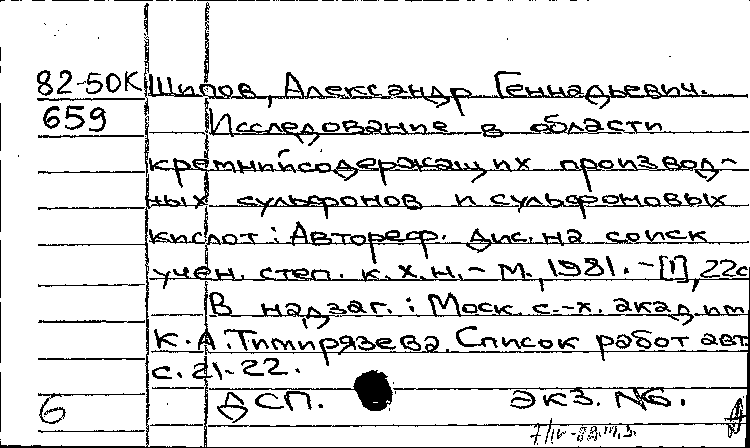 82-50К Шипов, Александр Геннадьевич.
659 Исследование в области
кремнийсодержащих производ-
ных сульфонов и сульфоновых
кислот: Автореф. дис. на соиск
учен. степ. к.х.н. - М., 1981. - [1], 22с
В надзаг.: Моск. с.-х. акад. им
К.А. Тимирязева. Список работ авт
с. 21-22.
6 ДСП. экз. №6.